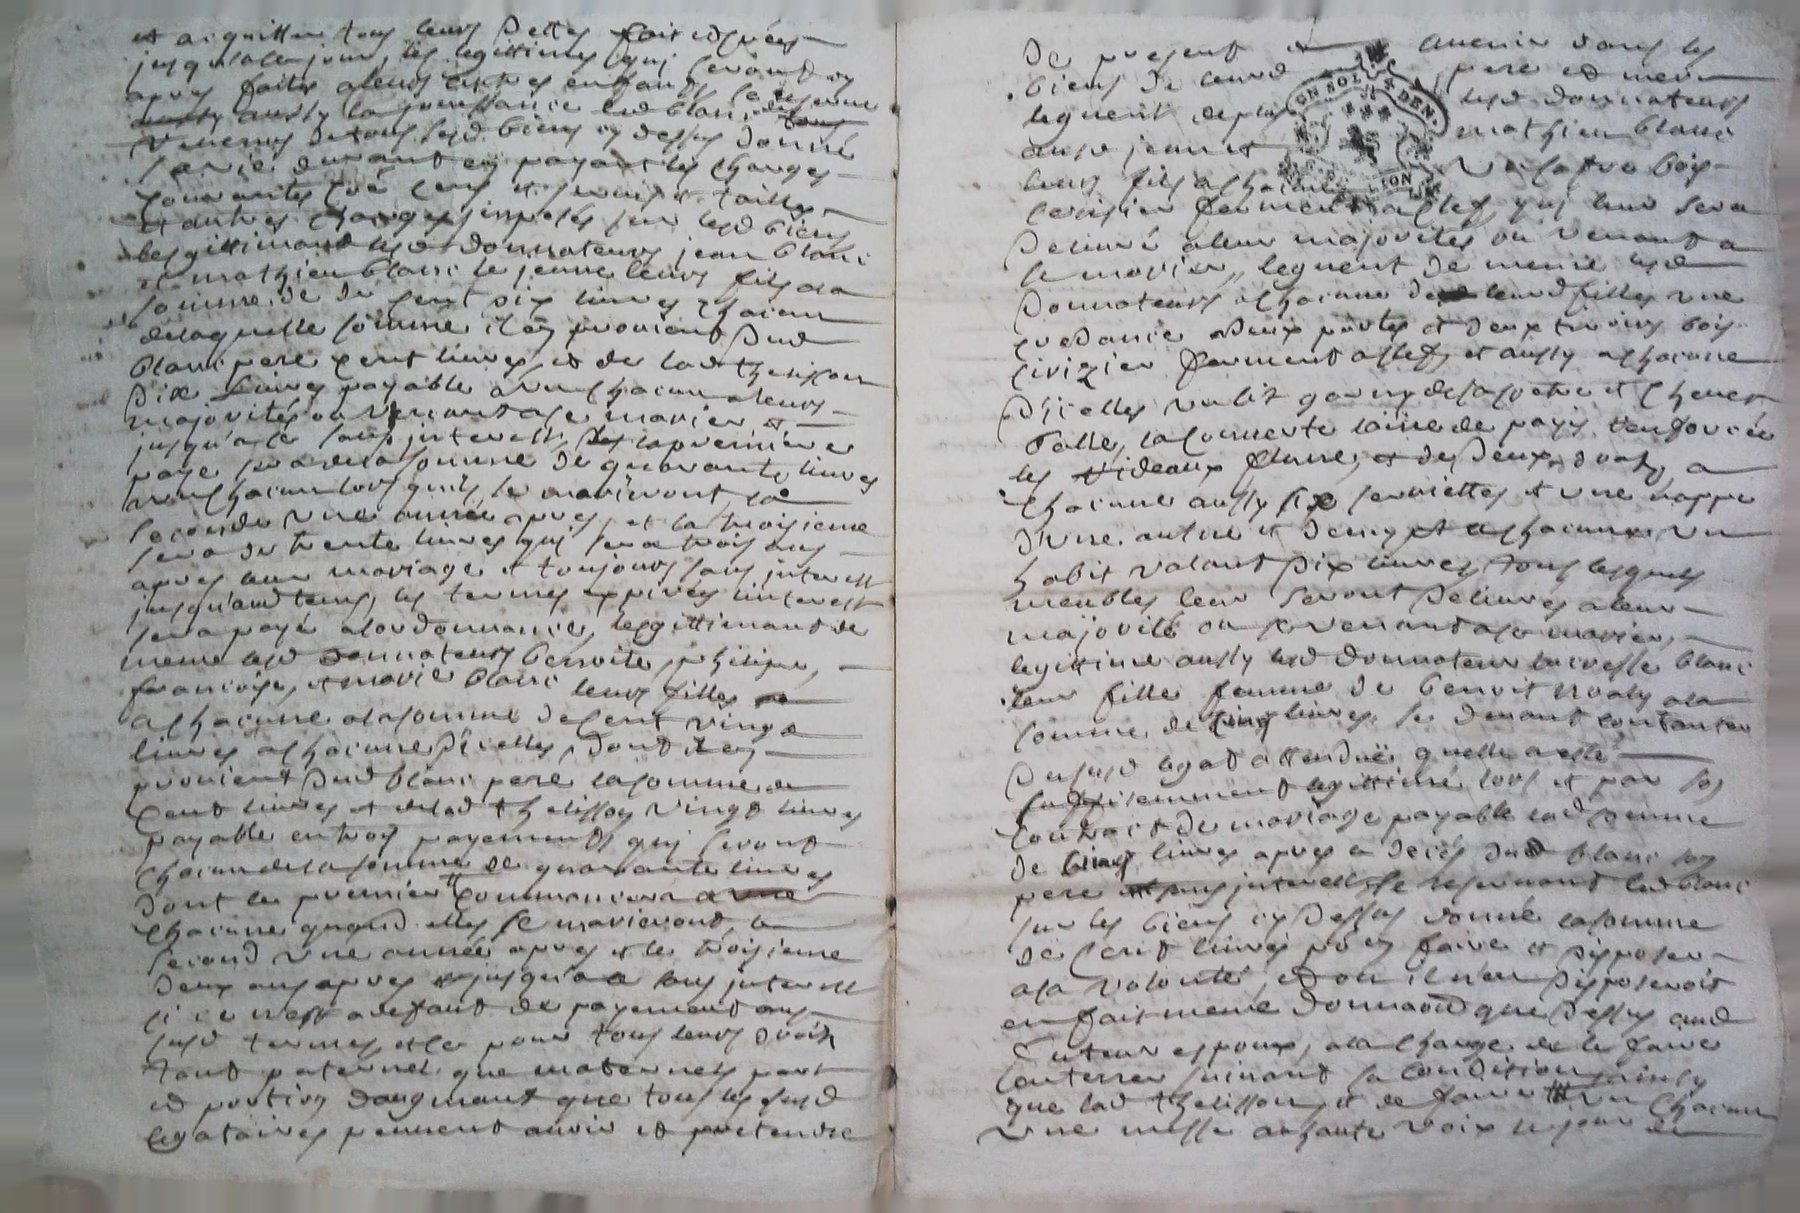 et acquitter tous leurs dettes fait et créés
jusqu'a ce jour, les legittimes qui seront cy
apres faites a leurs autres enfants, se reserve
aussy la jouissance led blanc
revenus de tous lesd biens cy dessus donné
sa vie durant en payant les charges
courantes cens et servis et tailles
et autres charges imposés sur lesd biens
legittimant lesd donnateurs jean blanc
et mathieu blanc le jeune leurs fils a la
somme de cent dix livres chacun
de laquelle somme il en provient dud
blanc pere cent livres, et de lad thelisson
dix livres payable a un chacun a leurs
majorités ou venant a se marier et
jusqu'a ce sans interest, la premiere
paye sera de la somme de quarante livres
a un chacun lors quils se marieront la
seconde une année apres, et la troisieme
sera de trente livres qui sera trois ans
apres leur mariage et toujours sans interest
jusqu'aud tems, les termes expirés linterest
sera payé a lordonnance, legittimant de
meme lesd donnateurs benoite, philipe,
francoise, et marie blanc leurs filles
a chacune a la somme de cent vingt
livres a chacune dicelles, dont il en
provient dud blanc pere la somme de
cent livres et de lad thelisson vingt livres
payable en trois payements qui seront
chacun de la somme de quarante livres
dont le premier commancera
chacune quand elles se marieront, le
second une année apres et le troisieme
deux ans apres et jusqu'a ce sans interest
si ce n'est a defaut de payement aux
susd termes et ce pour tous leurs droits
tant paternel que maternels part
et portion daugmant que tous les susd
legataires peuvent avoir et pretendre
de present et avenir dans les
biens de leurd pere et mere
leguent de plus lesd donnateurs
aud jean et mathieu blanc
leurs fils a chacun un coffre bois
cerisier fermant a clef, qui leur sera
delivré a leur majorités ou venant a
se marier, leguent de meme lesd
donnateurs a chacune de leurd filles une
gredance a deux portes et deux tiroirs bois
cirizier fermant a clef, et aussy a chacune
dicelles un lit garny de sa coetre et chevet
talle, la couverte laine de pays
les rideaux, et de deux draps a
chacune aussy six serviettes et une nappe
d'une aulne et demy et a chacune un
habit valant dix livres, tous lesquels
meubles leur seront delivrés a leur
majorité ou venant a se marier,
legittime aussy lesd donnateur blanc
leur fille femme de benoit a la
somme de cinq livres se devant contanter
dususd legat attenduë quelle a esté
suffisemment legittimé lors et par son
contract de mariage payable lad somme
de cinq livres apres le decés dud blanc son
pere sans interest, se reservant led blanc
sur les biens cy dessus donné la somme
de cent livres pour en faire et disposer
a sa volonté, et ou il n'en disposeroit
en fait meme donnaon que dessus aud
futeur espoux, a la charge de le faire
enterrer suivant sa condition ainsy
que lad thelisson et de faire dire un chacun
une messe a haute voix le jour de